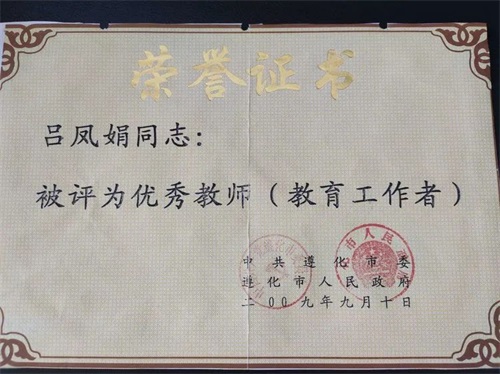 荣誉证书
吕凤娟同志：
被评为优秀教师（教育工作者）
中共遵化市委
遵化市人民政府
二00九年九月十日